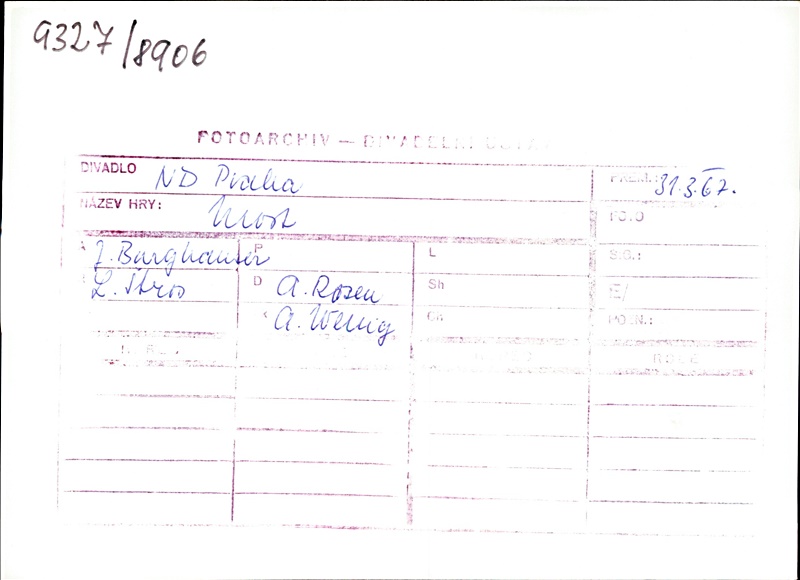 9327/8906
FOTOARCHIV — DIVADELNÍ ÚSTAV
DIVADLO ND Praha PREM.: 31.3.67.
NÁZEV HRY: Most FOTO
A J. Burghauser P L SIG.:
L. Štros D A. Rosen Sh
K A. Wenig Ch POZN.:
ROLE